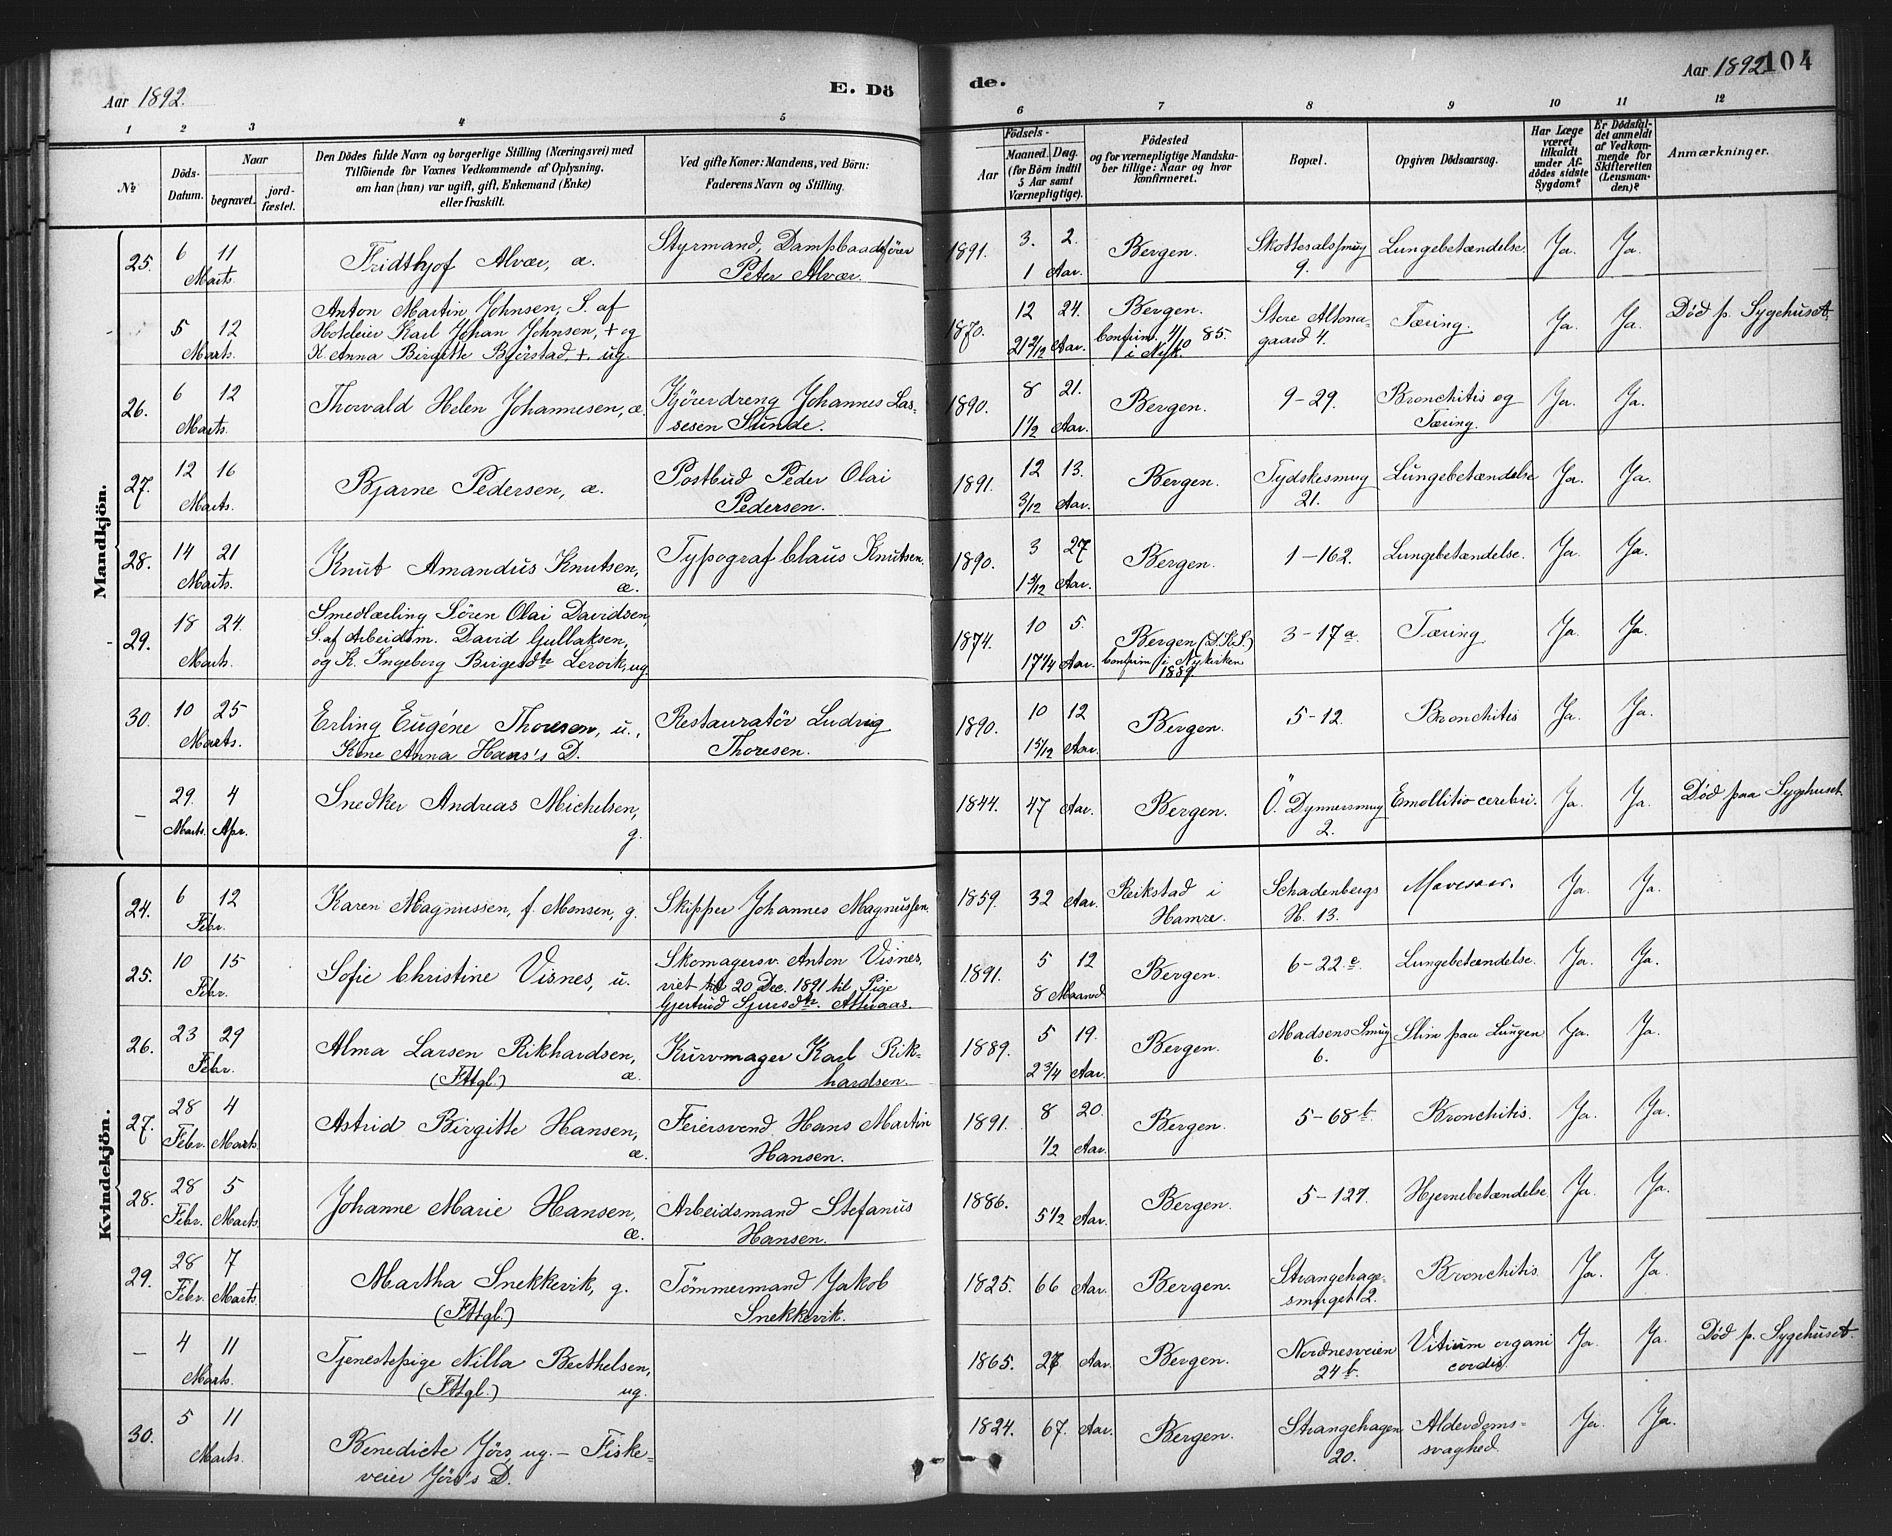 Aar 1892.
E. Dö
de.
Aar 1892. 104
1 2 3 4 5
6 7 8 9 10 11 12
№
Döds-Datum.
Naar
begravet.
jord-fæstet.
Den Dödes fulde Navn og borgerlige Stilling (Næringsvei) med
Tilföiende for Voxnes Vedkommende af Oplysning.
om han (hun) var ugift, gift, Enkemand (Enke)
eller fraskilt.
Ved gifte Koner: Mandens, ved Börn:
Faderens Navn og Stilling.
Födsels-
Aar
Maaned. Dag.
(for Börn indtil
5 Aar samt
Værnepligtige).
Födested
og for værnepligtige Mandska-
ber tillige: Naar og hvor
konfirmeret.
Bopæl.
Opgiven Dödsaarsag.
Har Læge
været
tilkaldt
under Af-
dödes sidste
Sygdom?
Er Dödsfal-
det anmeldt
af Vedkom-
mende for
Skifteretten
(Lensman-
den)?
Anmærkninger.
Mandkjön.
25. 6 11 Marts. Fridthjof Alvær, æ. Styrmand, Dampbaadsfører
Peter Alvær. 1891. 3. 2. 1 Aar. Bergen. Skottesalssmug
9. Lungebetændelse Ja. Ja.
5 12 Marts. Anton Martin Johnsen, S. af
Hoteleier Karl Johan Johnsen, + og
K. Anna Birgitte Bjørstad +, ug. 1870. 12 24. 21 2/12 Aar. Bergen.
Confirm. 4/10 85.
i Nysk. Store Altona-
gaard 4. Tæring. Ja. Ja. Död p. Sygehuset.
26. 6 12 Marts. Thorvald Helen Johannesen, æ. Kjøredreng Johannes Las-
sesen Sunde. 1890. 8 21. 1 1/2 Aar. Bergen. 9-29. Bronchitis og
Tæring. Ja. Ja.
27. 12 16 Marts. Bjarne Pedersen, æ. Postbud Peder Olai
Pedersen. 1891. 12 13. 3/12 Aar. Bergen. Tydskesmug
21. Lungebetændelse Ja. Ja.
28. 14 21 Marts. Knut Amandus Knutsen,
æ. Typograf Claus Knutsen. 1890. 3 27 Aar. Bergen. 1-162. Lungebetændelse. Ja. Ja.
29. 18 24. Marts. Smedlærling Søren Olai Davidsen,
S. af Arbeidsm. David Gullaksen,
og K. Ingeborg Birgesdtr Lervik, ug. 1874. 10 5. 17 1/4 Aar. Bergen (D.K.S.)
Confirm. i Nykirken
1889. 3-17a. Tæring Ja. Ja.
30. 10 25 Marts. Erling Eugéne Thoresen, u.,
Kone Anna Haas's D. Restauratør Ludvig
Thoresen. 1890. 10 12 1 5/12 Aar. Bergen. 5-12. Bronchitis Ja. Ja.
– 29. Marts. 4 Apr. Snedker Andreas Michelsen,
g. 1844. 47 Aar. Bergen. Ö. Dynnersmug
2. Emollitio cerebri. Ja. Ja. Död paa Sygehuset.
Kvindekjön.
24. 6 12 Febr. Karen Magnussen, f. Monsen, g. Skipper Johannes Magnussen. 1859. 32 Aar. Reikstad i
Hamre. Schadenbergs
H. 13. Mavesaar. Ja. Ja.
25. 10 15 Febr. Sofie Christine Visnes, u. Skomagersv. Anton Visnes,
viet 20 Dec. 1891 til Pige
Gjertrud Sjursdtr. 1891. 5 12 8 Maaned Bergen. 6-22e. Lungebetændelse. Ja. Ja.
26. 23 29 Febr. Alma Larsen Rikhardsen,
(Fttgl.) æ. Kurvmager Karl Rik-
hardsen. 1889. 5 19. 2 3/4 Aar. Bergen. Madsens Smug
6. Slim paa Lungen Ja. Ja.
27. 28 Febr. 4 Marts. Astrid Birgitte Hansen,
æ. Feiersvend Hans Martin
Hansen. 1891. 8 20. 1/2 Aar. Bergen. 5-68b. Bronchitis. Ja. Ja.
28. 28 Febr. 5 Marts. Johanne Marie Hansen,
æ. Arbeidsmand Stefanus
Hansen. 1886. 5 1/2 Aar. Bergen. 5-127. Hjernebetændelse Ja. Ja.
29. 28 Febr. 7 Marts. Martha Snekkevik, g.
(Fttgl.) Tömmermand Jakob
Snekkevik. 1825. 66 Aar. Bergen. Strangehage-
smuget 2. Bronchitis. Ja. Ja.
– 4 11 Marts. Tjenestepige Nilla Berthelsen,
(Fttgl.) ug. 1865. 27 Aar. Bergen. Nordnesveien
24b. Vitium organi
cordis. Ja. Ja. Död p. Sygehuset.
30. 5 11 Marts. Benedicte Jörs, ug. – Fiske-
veier Jörs's D. 1824. 67. Aar. Bergen. Strangehagen
20. Alderdoms-
svaghed. Ja. Ja.